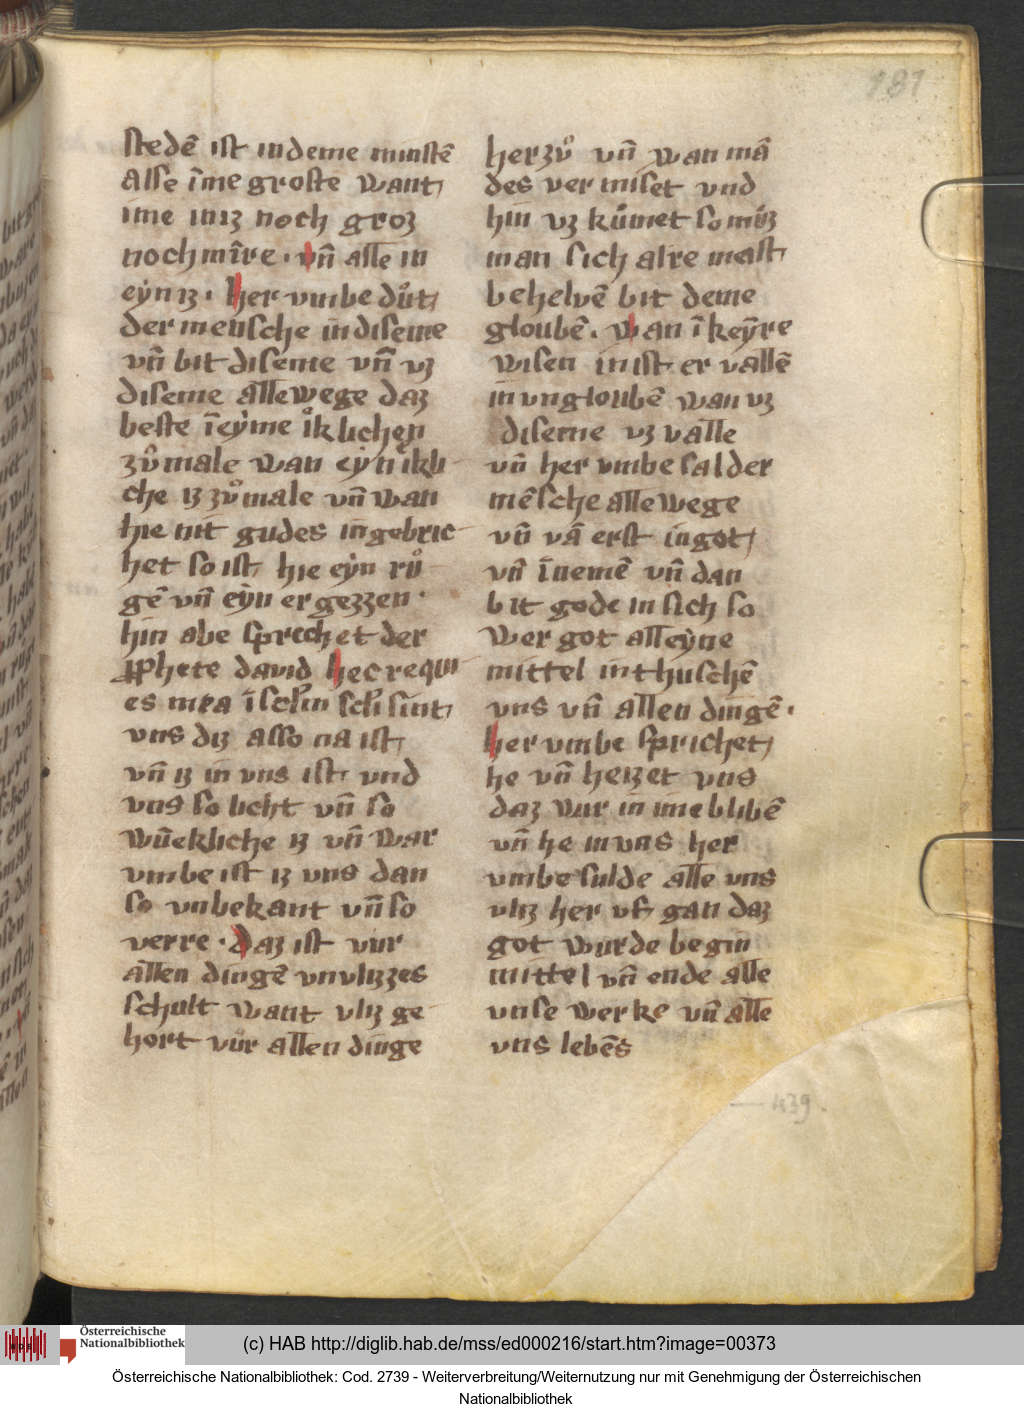 181
stedē ist in deme minstē
Alse īme groste want
ime iniz noch groz
noch mīre · vn̄ alle in
eẏn iz · her vmbe důt
der mensche in diseme
vn̄ bit diseme vn̄ vz
diseme alle wege daz
beste īeẏme iͦklichen
zůmale wan eẏn ikli
che iz zůmale vn̄ wan
hie nit gudes in gebric
het so ist hie eẏn rů
gē vn̄ eẏn er gezzen ·
hin abe sprechet der
ꝓphete david hec requi
es mea ī sc̄l'm sc̄l'i sint
vns diz also na ist
vn̄ iz in vns ist vnd
vns so licht vn̄ so
wūekliche iz vn̄ war
vmbe ist iz vns dan
so vnbekant vn̄ so
verre · daz ist vur
allen dingē vnvlizzes
schult want vliz ge
hort vůr allen dinge
her zů vn̄ wan mā
des ver miset vnd
hin vz kůmet so můz
man sich alre meist
behelvē bit deme
gloubē · wan ī keẏre
wisen in ist er vallē
in vngloubē wan vz
diseme vz valle
vn̄ her vmbe sal der
mēsche alle wege
vn̄ vā erst in got
vn̄ īnemē vn̄ dan
bit gode in sich so
wer got alleẏne
mittel in thuschē
vns vn̄ allen dingē ·
her vmbe sprichet
he vn̄ heizet vns
daz wir in ime blibē
vn̄ he in vns her
vmbe sulde alle vns
vliz her vf gan daz
got wurde begin
mittel vn̄ ende alle
vnse werke vn̄ alle
vns lebēs
439.
Österreichische
Nationalbibliothek
(c) HAB http://diglib.hab.de/mss/ed000216/start.htm?image=00373
Österreichische Nationalbibliothek: Cod. 2739 - Weiterverbreitung/Weiternutzung nur mit Genehmigung der Österreichischen
Nationalbibliothek